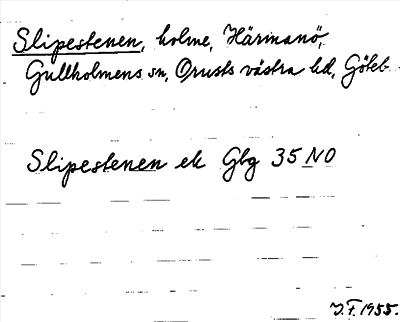 Slipestenen, holme, Härmanö,
Gullholmens sn, Orusts västra hd, Göteb
Slipestenen ek Gbg 35 NO
J.F. 1955.